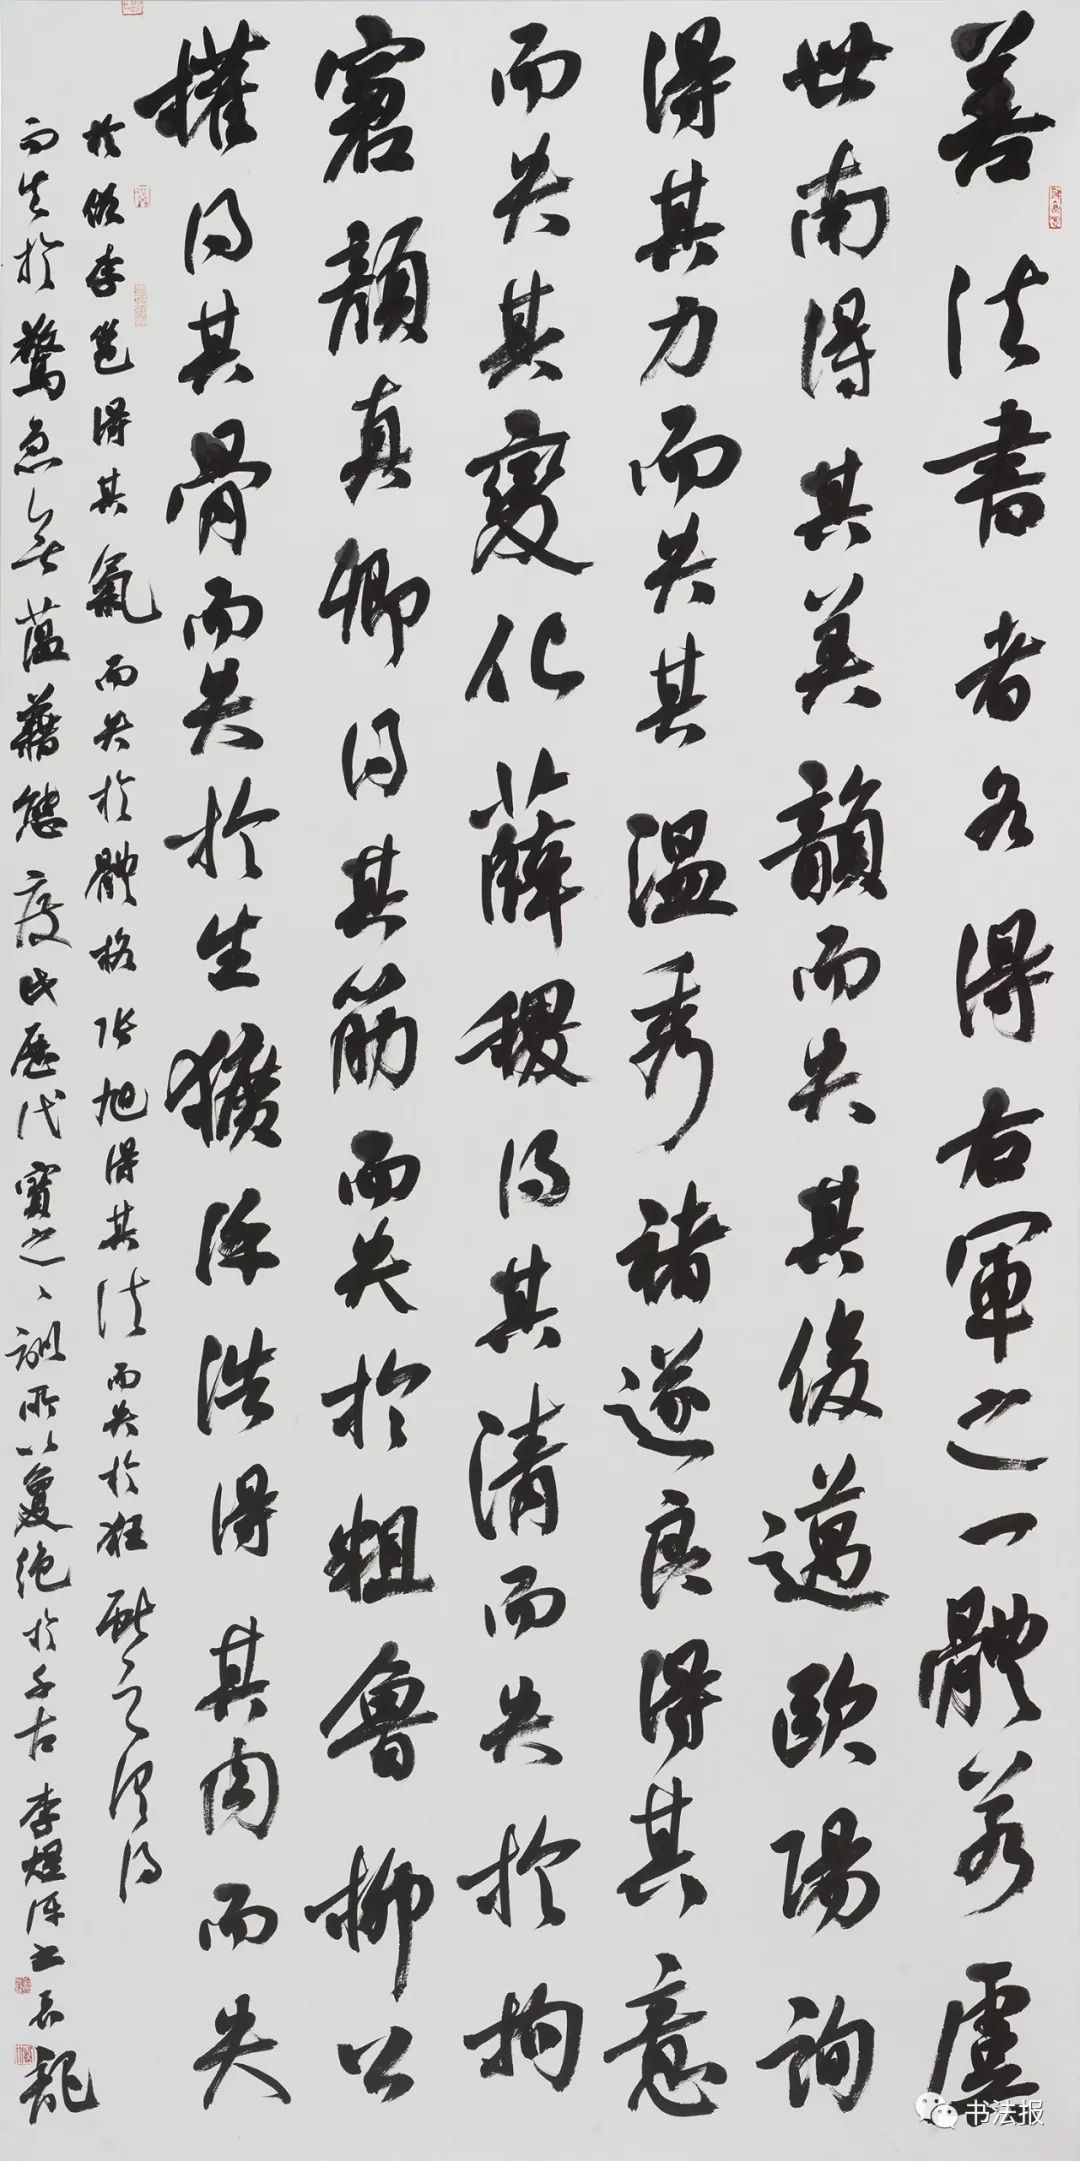 善法書者各得右軍之一體若虞
世南得其美韻而失其俊邁歐陽詢
得其力而失其溫秀褚遂良得其意
而失其變化薛稷得其清而失於拘
窘顏真卿得其筋而失於粗魯柳公
權得其骨而失於生獷徐浩得其肉而失
於俗李邕得其氣而失於體格張旭得其法而失於狂獻之俱得
而失於驚急無蘊藉態度此歷代寶之〻訓所以夐絕於千古李煜評書
书法报